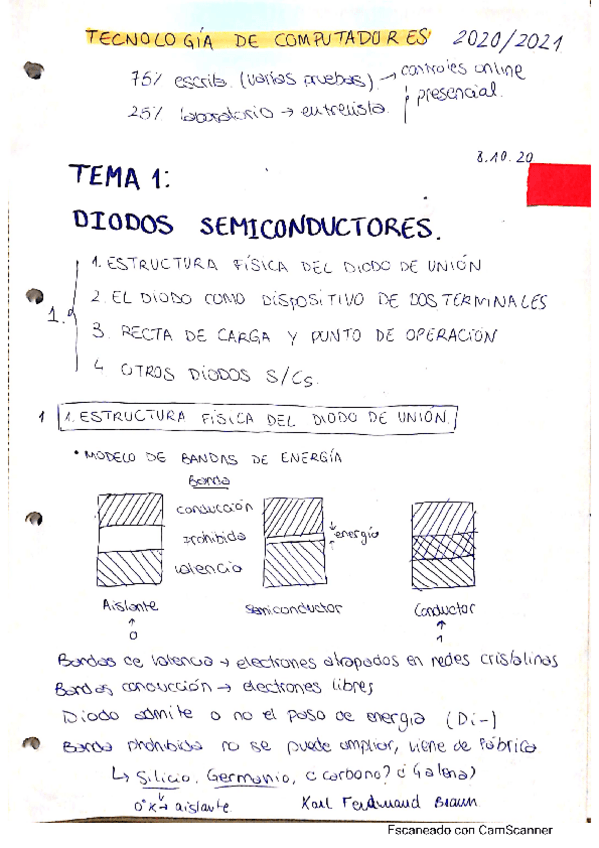 TECNOLOGÍA DE COMPUTADORES 2020/2021
75% escrita (varias pruebas) → controles online
presencial.
25% laboratorio → entrevista.
8.10.20
TEMA 1:
DIODOS SEMICONDUCTORES.
1. ESTRUCTURA FÍSICA DEL DIODO DE UNIÓN
2. EL DIODO COMO DISPOSITIVO DE DOS TERMINALES
1.
3. RECTA DE CARGA Y PUNTO DE OPERACIÓN
4 OTROS DIODOS S/Cs.
1 1. ESTRUCTURA FÍSICA DEL DIODO DE UNIÓN.
• MODELO DE BANDAS DE ENERGÍA
Banda
conducción
Prohibida energía
valencia
Aislante Semiconductor Conductor
0 1
Bandas de valencia → electrones atrapados en redes cristalinas
Bandas conducción → electrones libres
Diodo admite o no el paso de energía (Di-)
Banda prohibida no se puede ampliar, viene de fábrica
↳ Silicio, Germanio, ¿carbono? ¿Galena?
0°K → aislante Karl Ferdinand Braun
Escaneado con CamScanner